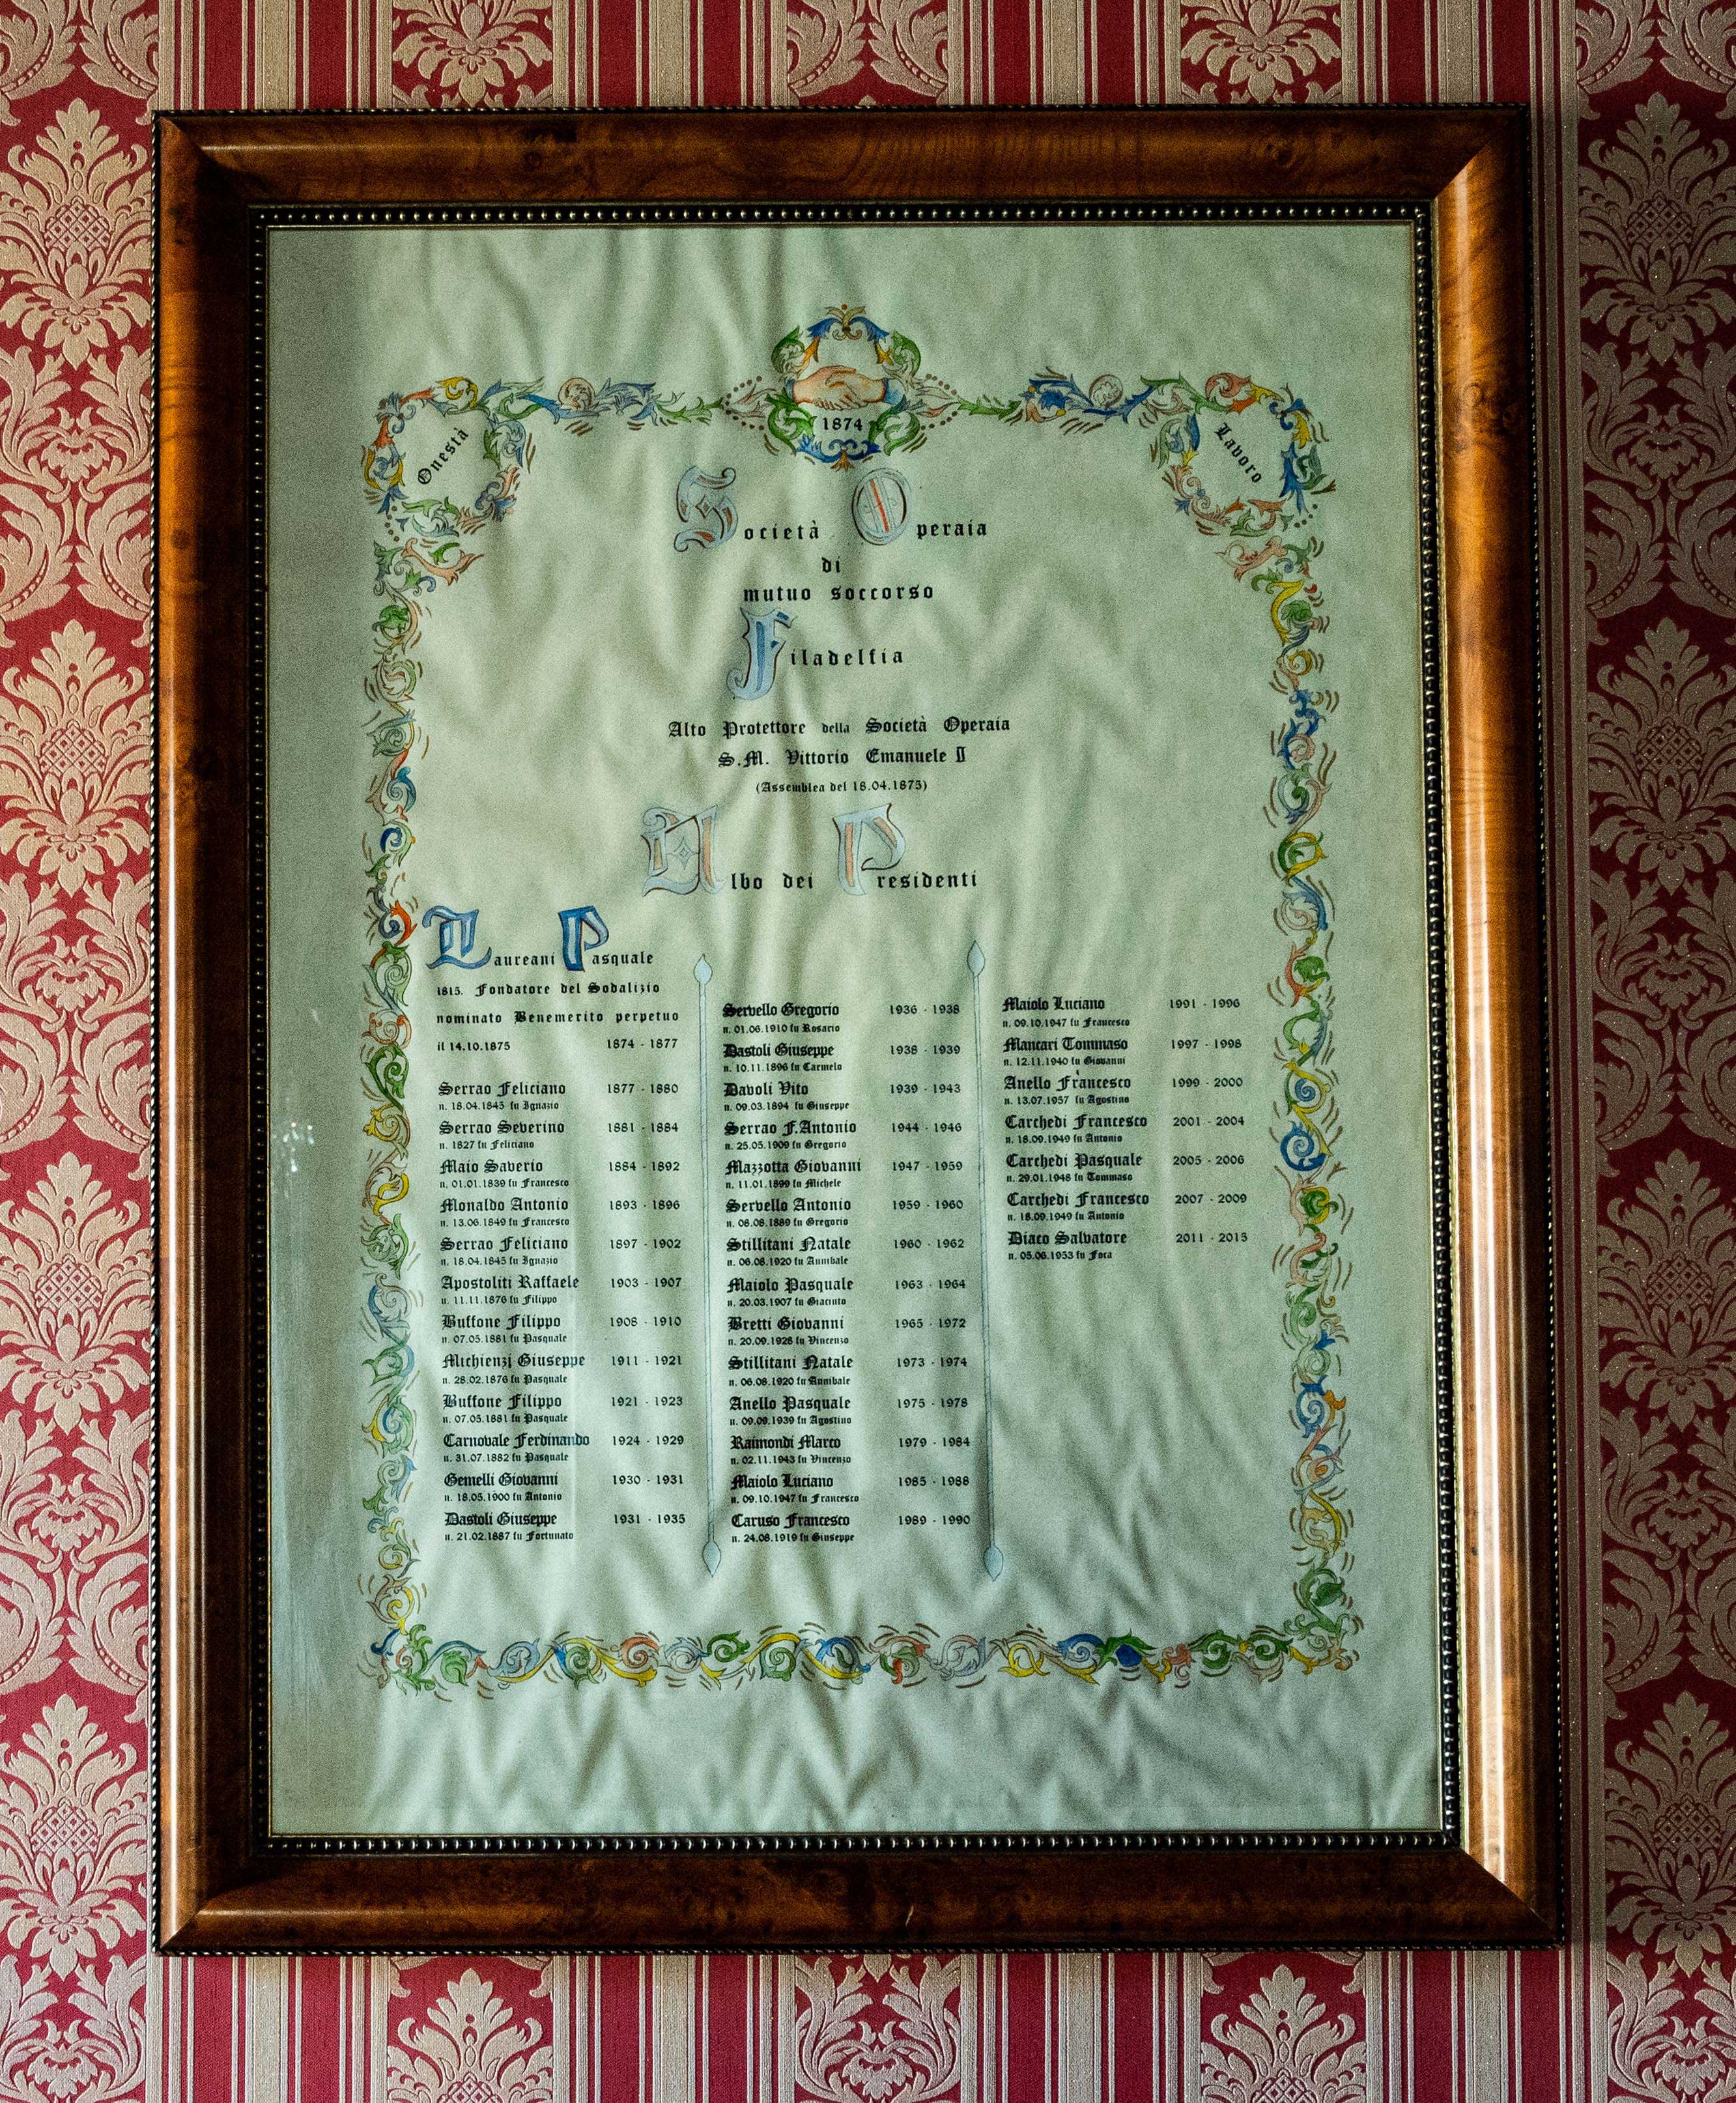 1874
Onestà
Lavoro
Società Operaia
di
mutuo soccorso
Filadelfia
Alto Protettore della Società Operaia
S.M. Vittorio Emanuele II
(Assemblea del 18.04.1875)
Albo dei Presidenti
Laureani Pasquale
1815. Fondatore del Sodalizio
nominato Benemerito perpetuo
il 14.10.1875 1874 - 1877
Serrao Feliciano 1877 - 1880
n. 18.04.1845 fu Ignazio
Serrao Severino 1881 - 1884
n. 1827 fu Feliciano
Maio Saverio 1884 - 1892
n. 01.01.1839 fu Francesco
Monaldo Antonio 1893 - 1896
n. 13.06.1849 fu Francesco
Serrao Feliciano 1897 - 1902
n. 18.04.1845 fu Ignazio
Apostoliti Raffaele 1903 - 1907
n. 11.11.1876 fu Filippo
Buffone Filippo 1908 - 1910
n. 07.05.1881 fu Pasquale
Michienzi Giuseppe 1911 - 1921
n. 28.02.1876 fu Pasquale
Buffone Filippo 1921 - 1923
n. 07.05.1881 fu Pasquale
Carnovale Ferdinando 1924 - 1929
n. 31.07.1882 fu Pasquale
Gemelli Giovanni 1930 - 1931
n. 18.05.1900 fu Antonio
Dastoli Giuseppe 1931 - 1935
n. 21.02.1887 fu Fortunato
Servello Gregorio 1936 - 1938
n. 01.06.1910 fu Rosario
Dastoli Giuseppe 1938 - 1939
n. 10.11.1896 fu Carmelo
Davoli Vito 1939 - 1943
n. 09.03.1894 fu Giuseppe
Serrao F.Antonio 1944 - 1946
n. 25.05.1909 fu Gregorio
Mazzotta Giovanni 1947 - 1959
n. 11.01.1899 fu Michele
Servello Antonio 1959 - 1960
n. 08.08.1889 fu Gregorio
Stillitani Natale 1960 - 1962
n. 06.08.1920 fu Annibale
Maiolo Pasquale 1963 - 1964
n. 20.03.1907 fu Giacinto
Bretti Giovanni 1965 - 1972
n. 20.09.1928 fu Vincenzo
Stillitani Natale 1973 - 1974
n. 06.08.1920 fu Annibale
Anello Pasquale 1975 - 1978
n. 09.09.1939 fu Agostino
Raimondi Marco 1979 - 1984
n. 02.11.1943 fu Vincenzo
Maiolo Luciano 1985 - 1988
n. 09.10.1947 fu Francesco
Caruso Francesco 1989 - 1990
n. 24.08.1919 fu Giuseppe
Maiolo Luciano 1991 - 1996
n. 09.10.1947 fu Francesco
Mancari Tommaso 1997 - 1998
n. 12.11.1940 fu Giovanni
Anello Francesco 1999 - 2000
n. 13.07.1957 fu Agostino
Carchedi Francesco 2001 - 2004
n. 18.09.1949 fu Antonio
Carchedi Pasquale 2005 - 2006
n. 29.01.1948 fu Tommaso
Carchedi Francesco 2007 - 2009
n. 18.09.1949 fu Antonio
Diaco Salvatore 2011 - 2015
n. 05.06.1953 fu Foca